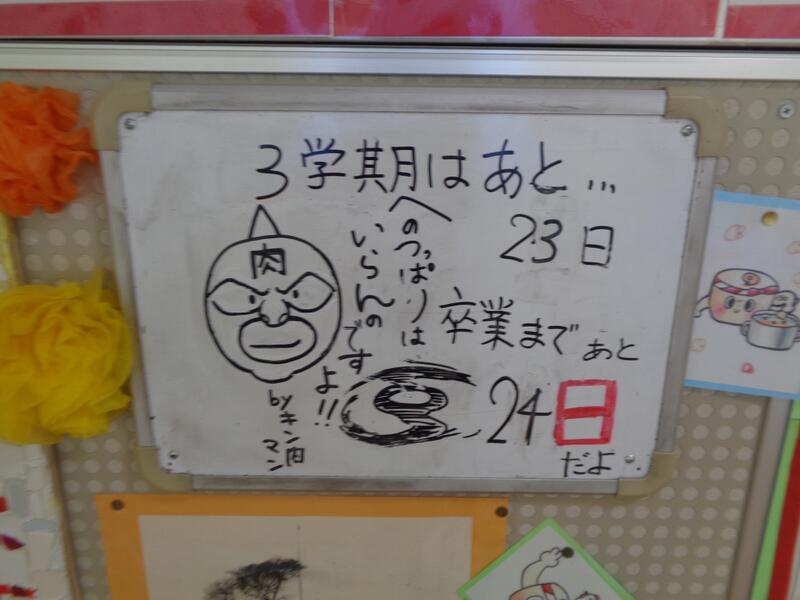 3学期はあと...
23日
卒業まであと
24日
だよ
肉
へのつっぱりは
いらんの
ですよ!!
byキン肉
マン